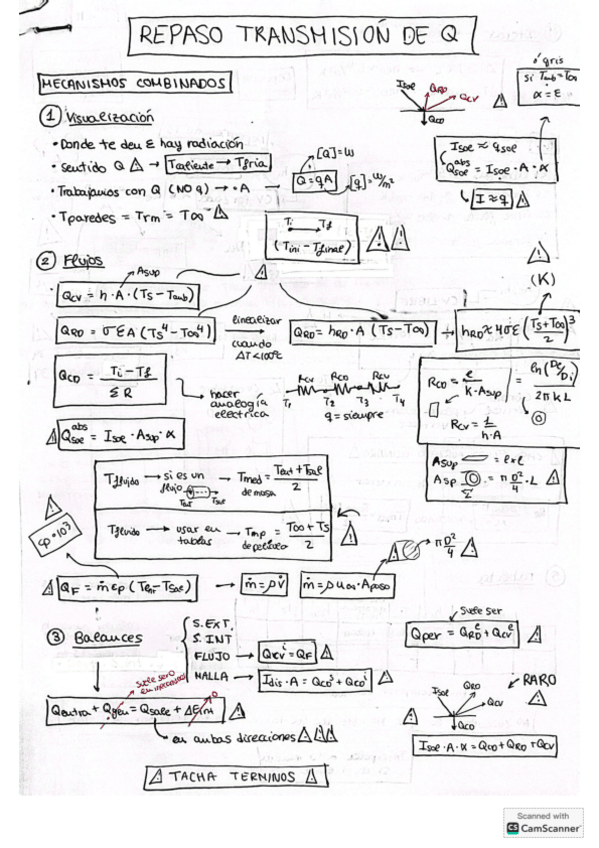 REPASO TRANSMISIÓN DE Q
MECANISMOS COMBINADOS
gris
si Tamb = T∞
α = ε
Isol QRD QCV
QCD
① Visualización
• Donde te den ε hay radiación
• Sentido Q ⚠ → Tcaliente → Tfría
• Trabajamos con Q (NO q) → · A → Q = qA
[Q] = W
[q] = W/m²
• Tparedes = Trm = T∞ ⚠
Isol ≈ qsol
Qsol^abs = Isol · A · α
↳ I ≈ q ⚠
Ti → Tf
(Tini - Tfinal) ⚠ ⚠
② Flujos
Asup
QCV = h · A · (Ts - Tamb)
⚠
(K)
QRD = σ ε A (Ts⁴ - T∞⁴)
linealizar
cuando
ΔT < 100°C
QRD = hRD · A (Ts - T∞)
hRD ≈ 4σε ((Ts + T∞)/2)³
QCD = (Ti - Tf)/ΣR
hacer
analogía
eléctrica
Rcv RCD Rcv
T1 T2 T3 T4
q = siempre
RCD = e/(K · Asup) = ln(De/Di)/(2πkL)
Rcv = 1/(h · A)
⚠ Qsol^abs = Isol · Asup · α
Tfluido → si es un
flujo
Tent Tsal
Tmed = (Tent + Tsal)/2
de masa
Tfluido → usar en
tablas → Tmp = (T∞ + Ts)/2 ⚠
de película
cp · 10³
⚠
⚠ QF = ṁ cp (Tent - Tsal) → ṁ = ρ V̇ ṁ = ρ u∞ · Apaso
⚠ → π D²/4 ⚠
③ Balances
S. EXT.
S. INT
FLUJO → Qcv^i = QF ⚠
MALLA → Idis · A = QCD^s + QCD^i ⚠
suele ser
Qper = QRD^e + QCV^e ⚠
suele ser 0
0
Qentra + Qgen = Qsale + ΔEint ⚠
↳ en ambas direcciones ⚠⚠⚠
⚠ RARO
Isol QRD QCV ⚠
QCD
Isol · A · α = QCD + QRD + QCV
⚠ TACHA TERMINOS ⚠
Scanned with
CS CamScanner